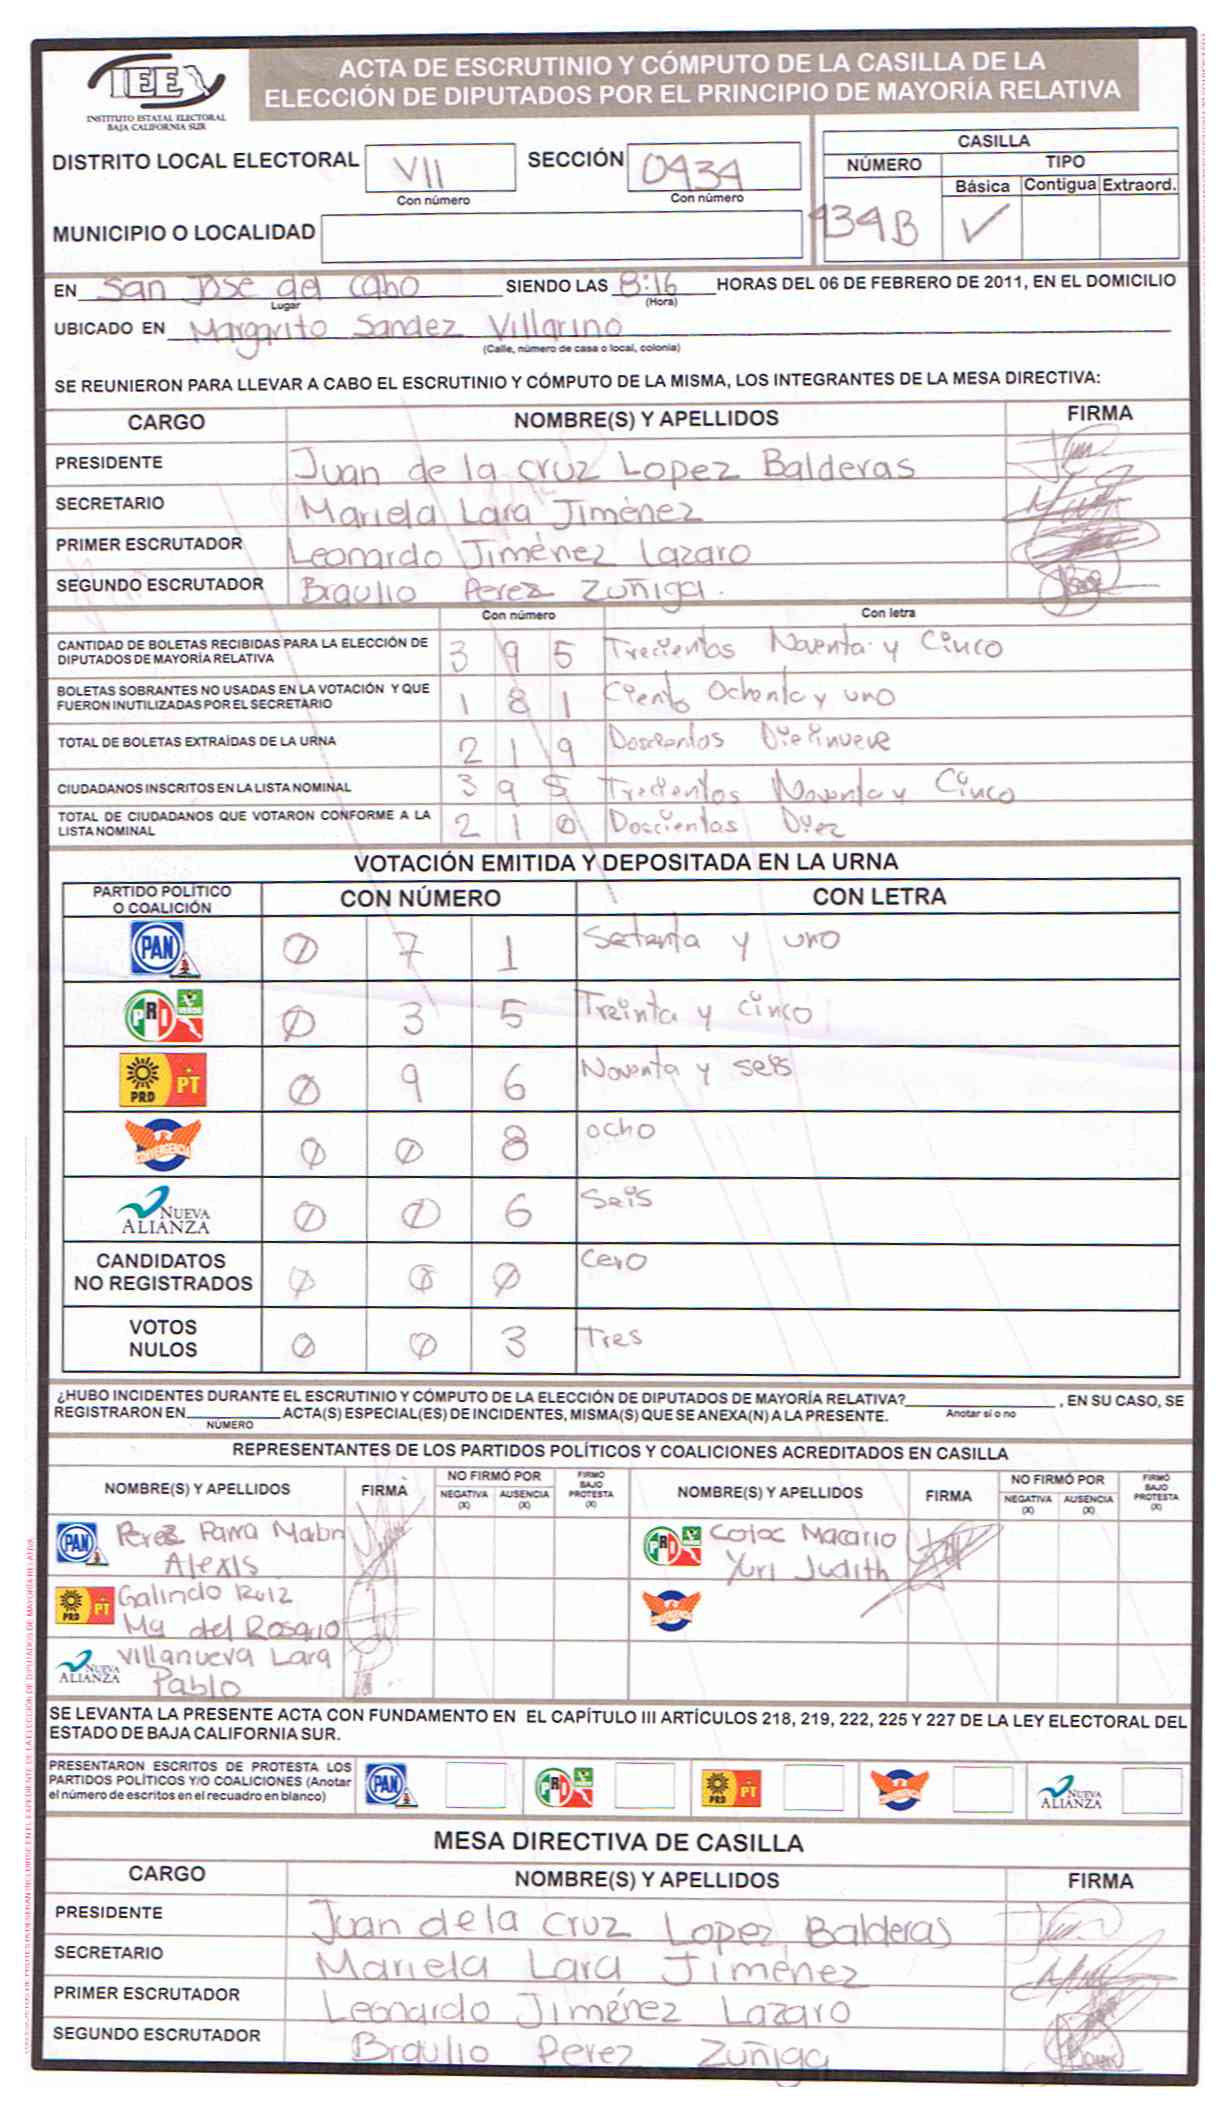 IEE
INSTITUTO ESTATAL ELECTORAL
BAJA CALIFORNIA SUR
ACTA DE ESCRUTINIO Y CÓMPUTO DE LA CASILLA DE LA
ELECCIÓN DE DIPUTADOS POR EL PRINCIPIO DE MAYORÍA RELATIVA
DISTRITO LOCAL ELECTORAL VII SECCIÓN 0434
Con número Con número
MUNICIPIO O LOCALIDAD
CASILLA
NÚMERO TIPO
Básica Contigua Extraord.
434B ✓
EN San Jose del cabo SIENDO LAS 8:16 HORAS DEL 06 DE FEBRERO DE 2011, EN EL DOMICILIO
Lugar (Hora)
UBICADO EN Margarito Sandez Villarino
(Calle, número de casa o local, colonia)
SE REUNIERON PARA LLEVAR A CABO EL ESCRUTINIO Y CÓMPUTO DE LA MISMA, LOS INTEGRANTES DE LA MESA DIRECTIVA:
CARGO NOMBRE(S) Y APELLIDOS FIRMA
PRESIDENTE Juan de la cruz Lopez Balderas
SECRETARIO Mariela Lara Jiménez
PRIMER ESCRUTADOR Leonardo Jiménez Lazaro
SEGUNDO ESCRUTADOR Braulio Perez Zuñiga.
Con número Con letra
CANTIDAD DE BOLETAS RECIBIDAS PARA LA ELECCIÓN DE
DIPUTADOS DE MAYORÍA RELATIVA 3 9 5 Trecientos Noventa y Cinco
BOLETAS SOBRANTES NO USADAS EN LA VOTACIÓN Y QUE
FUERON INUTILIZADAS POR EL SECRETARIO 1 8 1 Ciento Ochenta y uno
TOTAL DE BOLETAS EXTRAÍDAS DE LA URNA 2 1 9 Doscientos Diecinueve
CIUDADANOS INSCRITOS EN LA LISTA NOMINAL 3 9 5 Trecientos Noventa y Cinco
TOTAL DE CIUDADANOS QUE VOTARON CONFORME A LA
LISTA NOMINAL 2 1 0 Doscientos Diez
VOTACIÓN EMITIDA Y DEPOSITADA EN LA URNA
PARTIDO POLÍTICO
O COALICIÓN CON NÚMERO CON LETRA
PAN 0 7 1 Setenta y uno
PRI VERDE 0 3 5 Treinta y cinco
PRD PT 0 9 6 Noventa y seis
CONVERGENCIA 0 0 8 ocho
NUEVA ALIANZA 0 0 6 Seis
CANDIDATOS
NO REGISTRADOS 0 0 0 Cero
VOTOS
NULOS 0 0 3 Tres
¿HUBO INCIDENTES DURANTE EL ESCRUTINIO Y CÓMPUTO DE LA ELECCIÓN DE DIPUTADOS DE MAYORÍA RELATIVA? , EN SU CASO, SE
Anotar sí o no
REGISTRARON EN ACTA(S) ESPECIAL(ES) DE INCIDENTES, MISMA(S) QUE SE ANEXA(N) A LA PRESENTE.
NÚMERO
REPRESENTANTES DE LOS PARTIDOS POLÍTICOS Y COALICIONES ACREDITADOS EN CASILLA
NOMBRE(S) Y APELLIDOS FIRMA NO FIRMÓ POR NEGATIVA (X) AUSENCIA (X) FIRMÓ BAJO PROTESTA (X) NOMBRE(S) Y APELLIDOS FIRMA NO FIRMÓ POR NEGATIVA (X) AUSENCIA (X) FIRMÓ BAJO PROTESTA (X)
PAN Perez Parra
Alexis
PRI VERDE Cojoc Macario
Yuri Judith
PRD PT Galindo Ruiz
Ma del Rosario
CONVERGENCIA
NUEVA ALIANZA Villanueva Lara
Pablo
SE LEVANTA LA PRESENTE ACTA CON FUNDAMENTO EN EL CAPÍTULO III ARTÍCULOS 218, 219, 222, 225 Y 227 DE LA LEY ELECTORAL DEL
ESTADO DE BAJA CALIFORNIA SUR.
PRESENTARON ESCRITOS DE PROTESTA LOS
PARTIDOS POLÍTICOS Y/O COALICIONES (Anotar
el número de escritos en el recuadro en blanco)
PAN PRI VERDE PRD PT CONVERGENCIA NUEVA ALIANZA
MESA DIRECTIVA DE CASILLA
CARGO NOMBRE(S) Y APELLIDOS FIRMA
PRESIDENTE Juan de la cruz Lopez Balderas
SECRETARIO Mariela Lara Jiménez
PRIMER ESCRUTADOR Leonardo Jiménez Lazaro
SEGUNDO ESCRUTADOR Braulio Perez Zuñiga